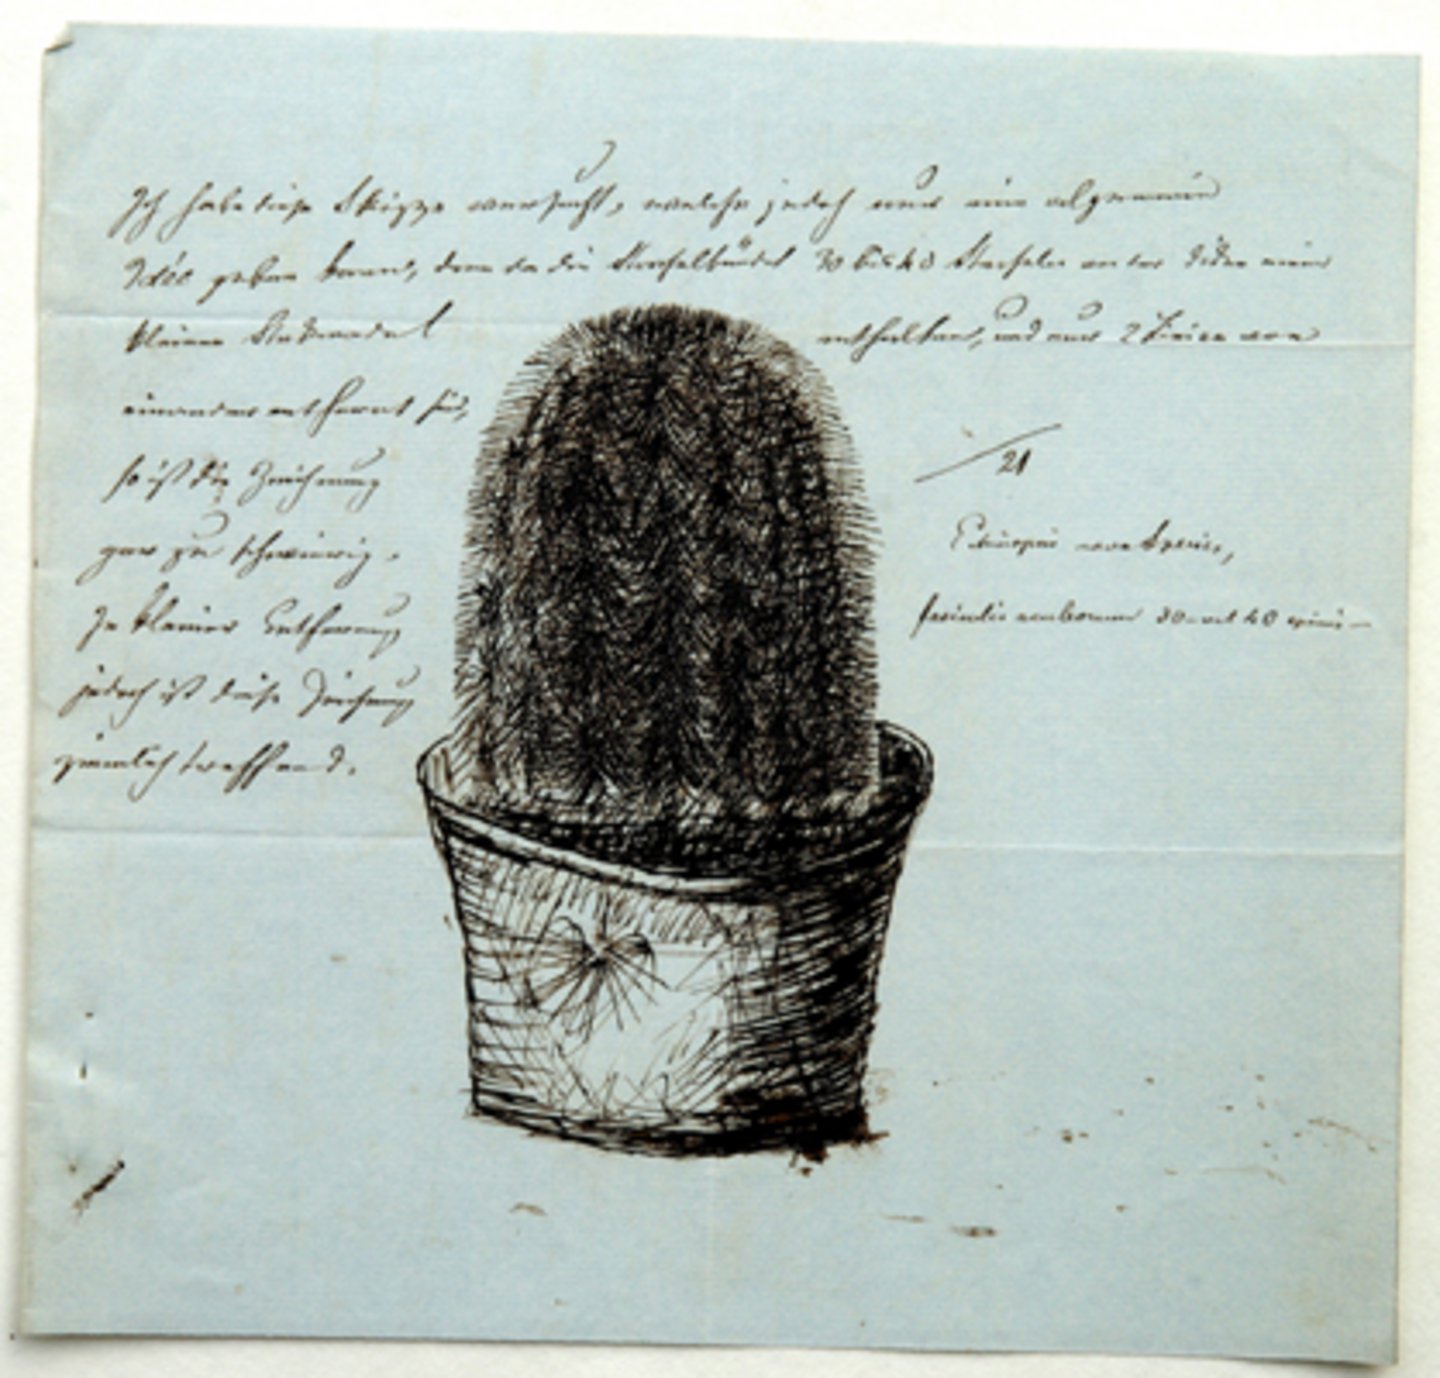 Ich habe diese Skizze versucht, welche jedoch nur eine allgemeine
Idée geben kann, denn da die Stachelbündel 30 bis 40 Stacheln
kleiner enthalten, und nur 2 Linien von
einander entfernt sind,
so ist die Zeichnung
gar zu schwierig.
In kleiner Entfernung
jedoch ist diese Zeichnung
ziemlich treffend.
21
nova Species,
30 vel 40